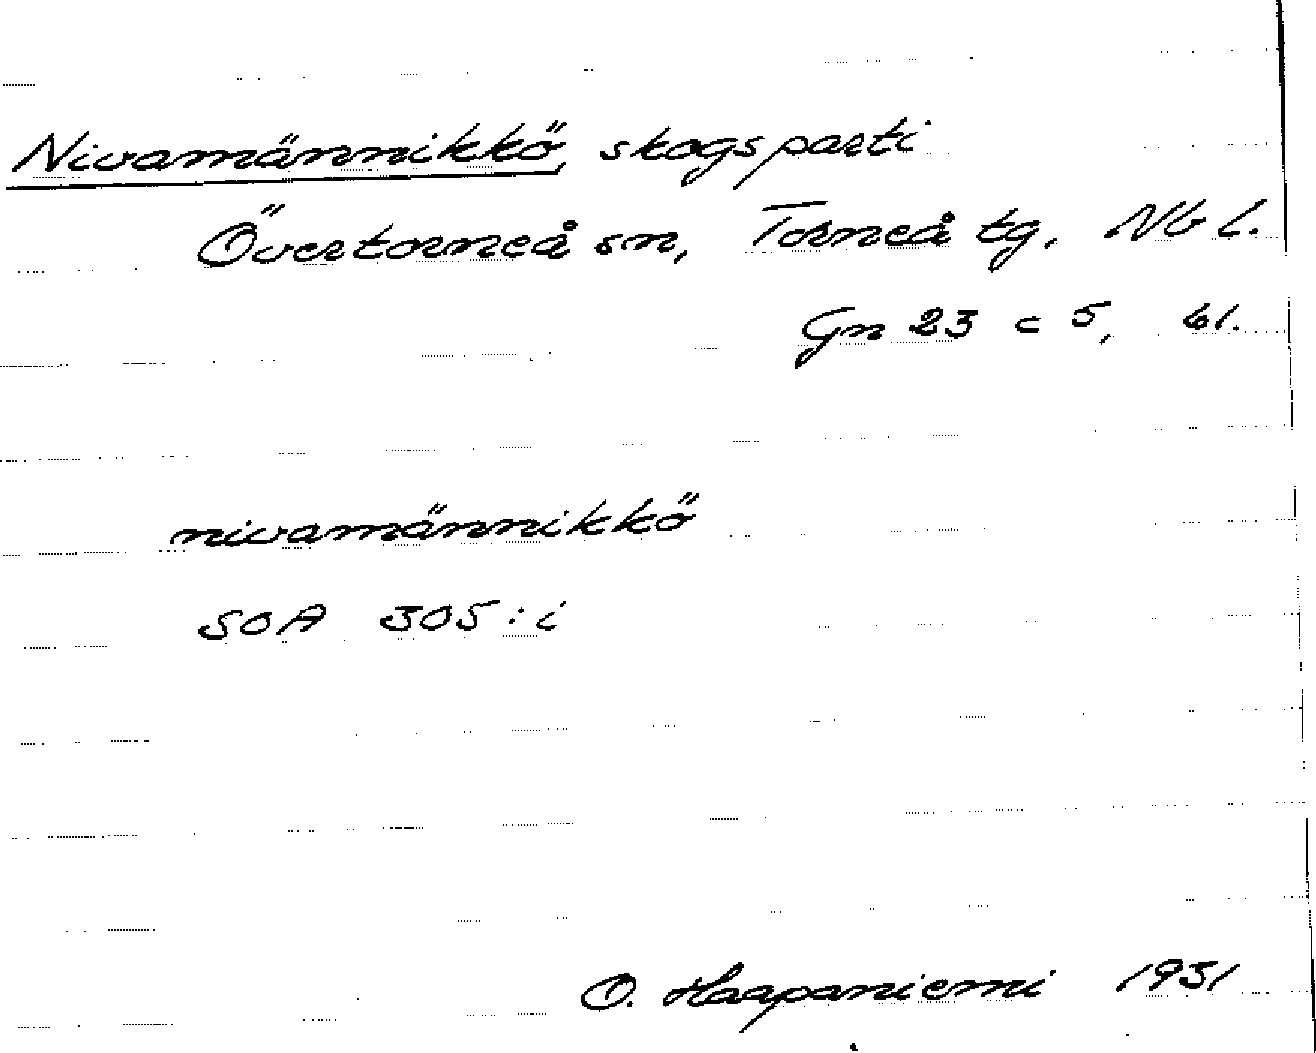 Nivamännikkö, skogsparti
Övertorneå sn, Torneå tg, Nb l.
Gn 23 c 5, 61.
nivamännikkö
SOA 305:i
O. Haapaniemi 1931